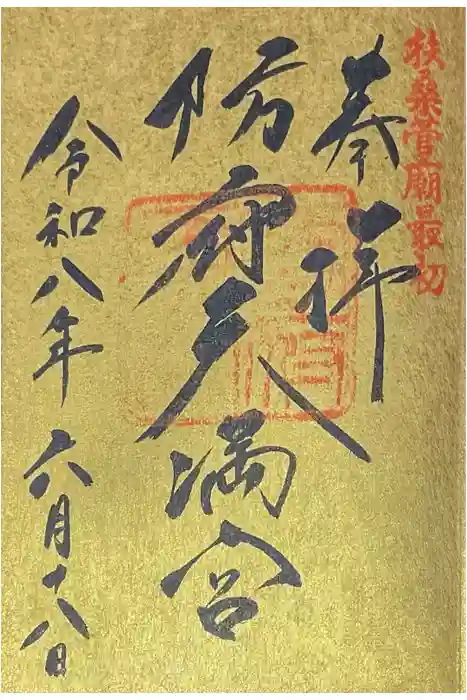 扶桑菅廟最初
奉拝
防府天満宮
令和八年六月十八日